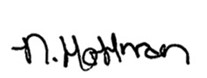 N. Hoffman